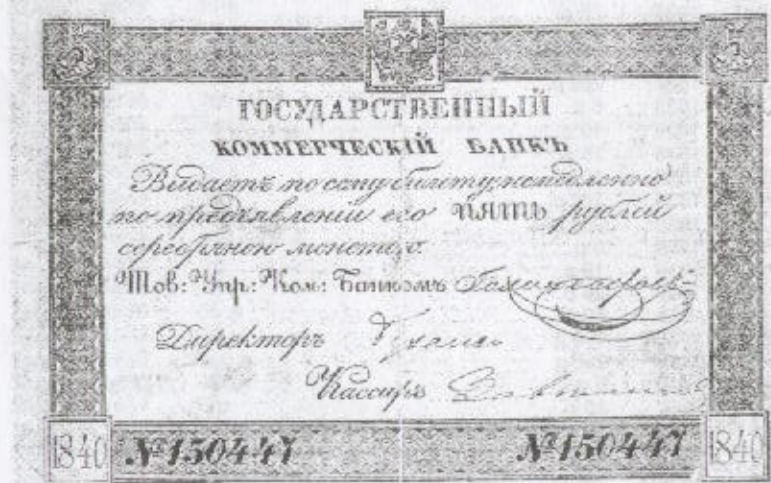 5 5
ГОСУДАРСТВЕННЫЙ
КОММЕРЧЕСКІЙ БАНКЪ
Выдаетъ по сему билету немедленно
по предъявленіи его ПЯТЬ рублей
серебряною монетою.
Тов: Упр: Ком: Банкомъ
Директоръ
Кассиръ
1840 №150447 №150447 1840